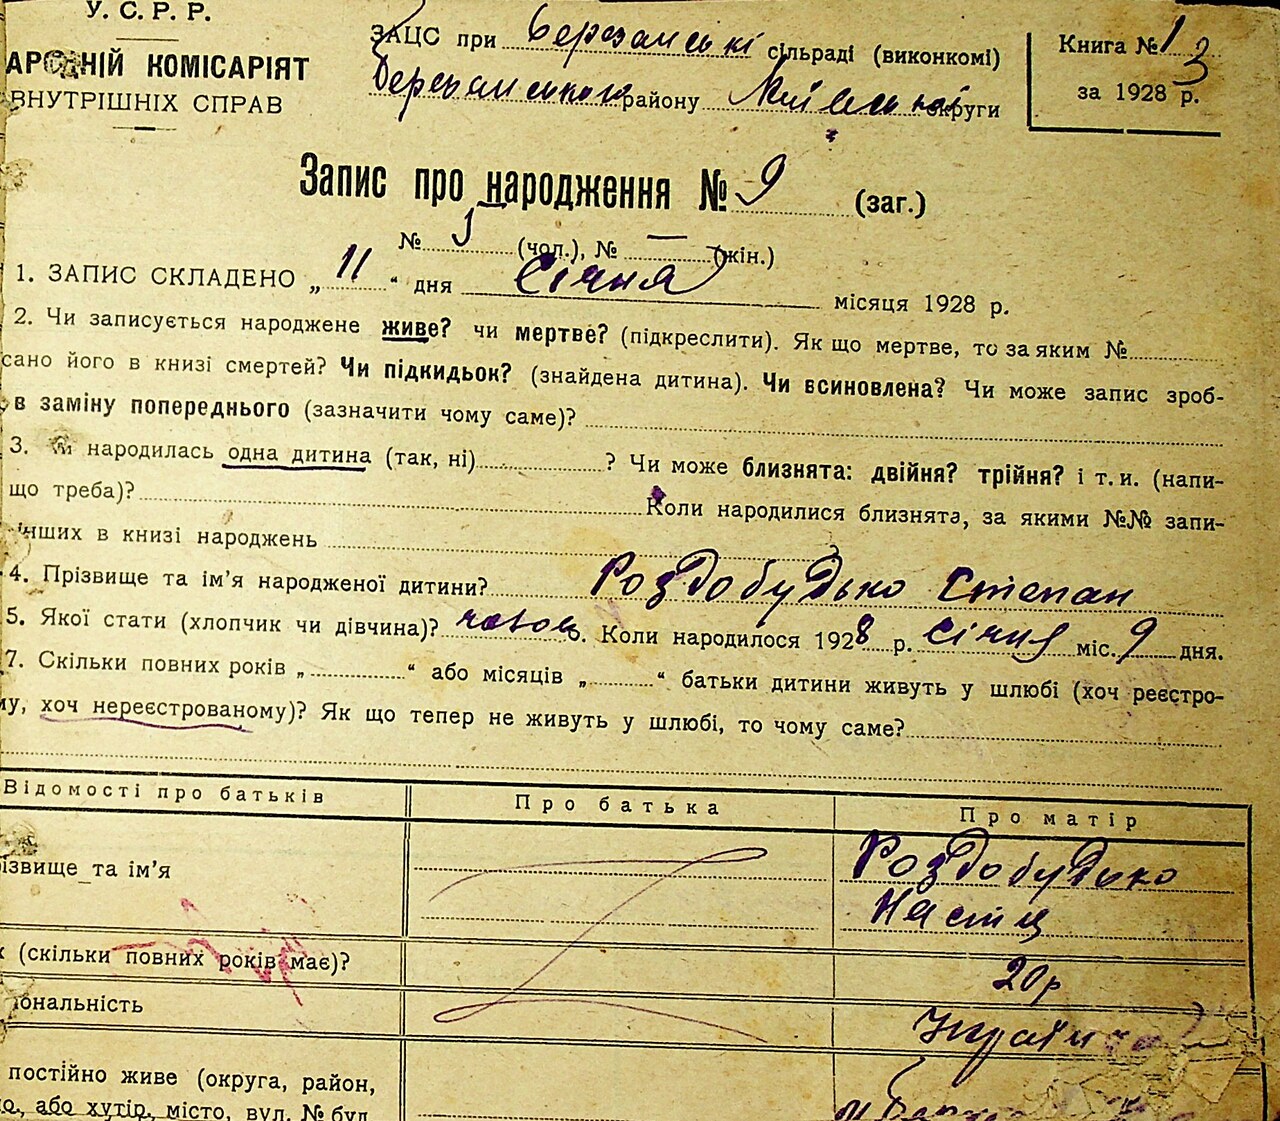 У. С. Р. Р.
АРОДНІЙ КОМІСАРІЯТ
ВНУТРІШНІХ СПРАВ
ЗАЦС при Березанській сільраді (виконкомі)
Березанського району Київської округи
Книга № 1
3
за 1928 р.
Запис про народження № 9 (заг.)
№ 5 (чол.), № — (жін.)
1. ЗАПИС СКЛАДЕНО „ 11 “ дня Січня місяця 1928 р.
2. Чи записується народжене живе? чи мертве? (підкреслити). Як що мертве, то за яким №
сано його в книзі смертей? Чи підкидьок? (знайдена дитина). Чи всиновлена? Чи може запис зроб-
в заміну попереднього (зазначити чому саме)?
3. Чи народилась одна дитина (так, ні) ? Чи може близнята: двійня? трійня? і т. и. (напи-
що треба)? Коли народилися близнята, за якими №№ запи-
інших в книзі народжень
4. Прізвище та ім’я народженої дитини? Роздобудько Степан
5. Якої стати (хлопчик чи дівчина)? 6. Коли народилося 1928 р. Січня міс. 9 дня.
7. Скільки повних років „ “ або місяців „ “ батьки дитини живуть у шлюбі (хоч реєстро-
му, хоч нереєстрованому)? Як що тепер не живуть у шлюбі, то чому саме?
Відомості про батьків Про батька Про матір
різвище та ім’я Роздобудько
Настя
к (скільки повних років має)? 20 р
ціональність Українка
постійно живе (округа, район,
або хутір, місто, вул. № буд.